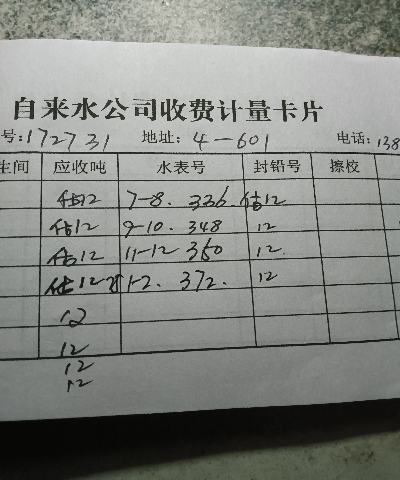 自来水公司收费计量卡片
号:172731 地址: 4-601 电话:138
生间 应收吨 水表号 封铅号 擦校
估12 7-8. 336. 估12
估12 9-10. 348 12
估12 11-12 360 12.
估12吨 1-2. 372. 12
12
12
12
12